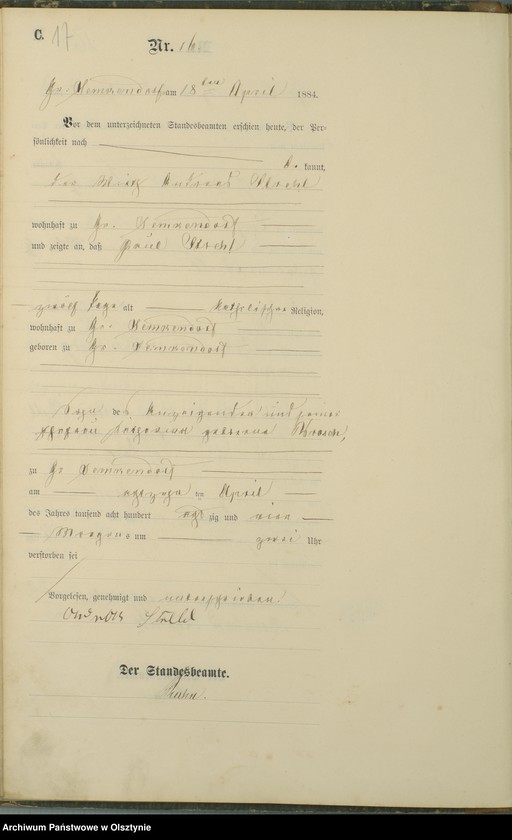 C. 17
Nr. 16
Gr. Lemkendorf am 18ten April 1884.
Vor dem unterzeichneten Standesbeamten erschien heute, der Per-
sönlichkeit nach
be kannt,
der Andreas
wohnhaft zu Gr. Lemkendorf
und zeigte an, daß Paul
zwölf Tage alt katholischer Religion,
wohnhaft zu Gr. Lemkendorf
geboren zu Gr. Lemkendorf
Sohn des Anzeigenden und seiner
Ehefrau geborene
zu Gr Lemkendorf
am achtzehn ten April
des Jahres tausend acht hundert acht zig und vier
Morgens um zwei Uhr
verstorben sei
Vorgelesen, genehmigt und unterschrieben
Der Standesbeamte.
Archiwum Państwowe w Olsztynie